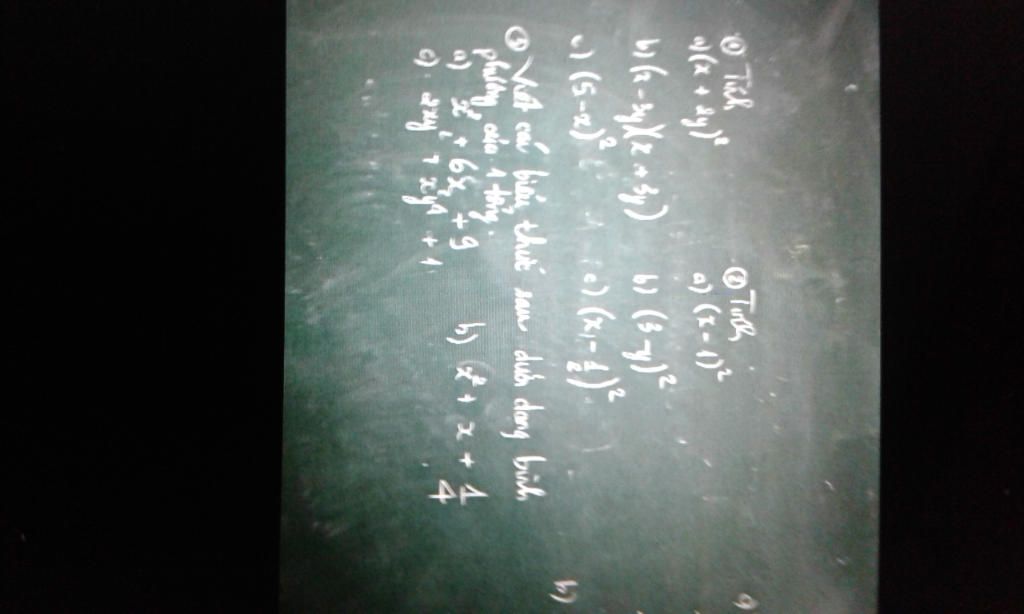 ① Tính
a) (x + 2y)²
b) (x - 3y)(x + 3y)
c) (5 - x)²
② Tính
a) (x - 1)²
b) (3 - y)²
c) (x - 1/2)²
③ Viết các biểu thức sau dưới dạng bình
phương của 1 tổng.
a) x² + 6x + 9
b) x² + x + 1/4
c) 2xy² + x²y⁴ + 1
b)